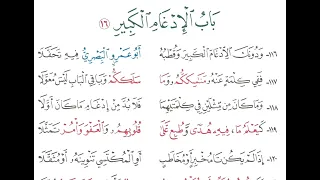 بَابُ الْإِدْغَامِ الْكَبِيرِ
١٦
١١٦- وَدُونَكَ الْإِدْغَامَ الْكَبِيرَ وَقُطْبُهُ أَبُو عَمْرٍو الْبَصْرِيُّ فِيهِ تَحَفَّلَا
١١٧- فَفِي كِلْمَةٍ عَنْهُ مَنَاسِكَكُّمْ وَمَا سَلَكَكُّمْ وَبَاقِي الْبَابِ لَيْسَ مُعَوَّلَا
١١٨- وَمَا كَانَ مِنْ مِثْلَيْنِ فِي كِلْمَتَيْهِمَا فَلَا بُدَّ مِنْ إِدْغَامِ مَا كَانَ أَوَّلَا
١١٩- كَيَعْلَمُ مَا، فِيهِ هُدًى وَطُبِعْ عَلَى قُلُوبِهِمُ وَالْعَفْوَ وَأْمُرْ تَمَثَّلَا
١٢٠- إِذَا لَمْ يَكُنْ تَا مُخْبِرٍ أَوْ مُخَاطَبٍ أَوِ الْمُكْتَسِي تَنْوِينُهُ أَوْ مُثَقَّلَا